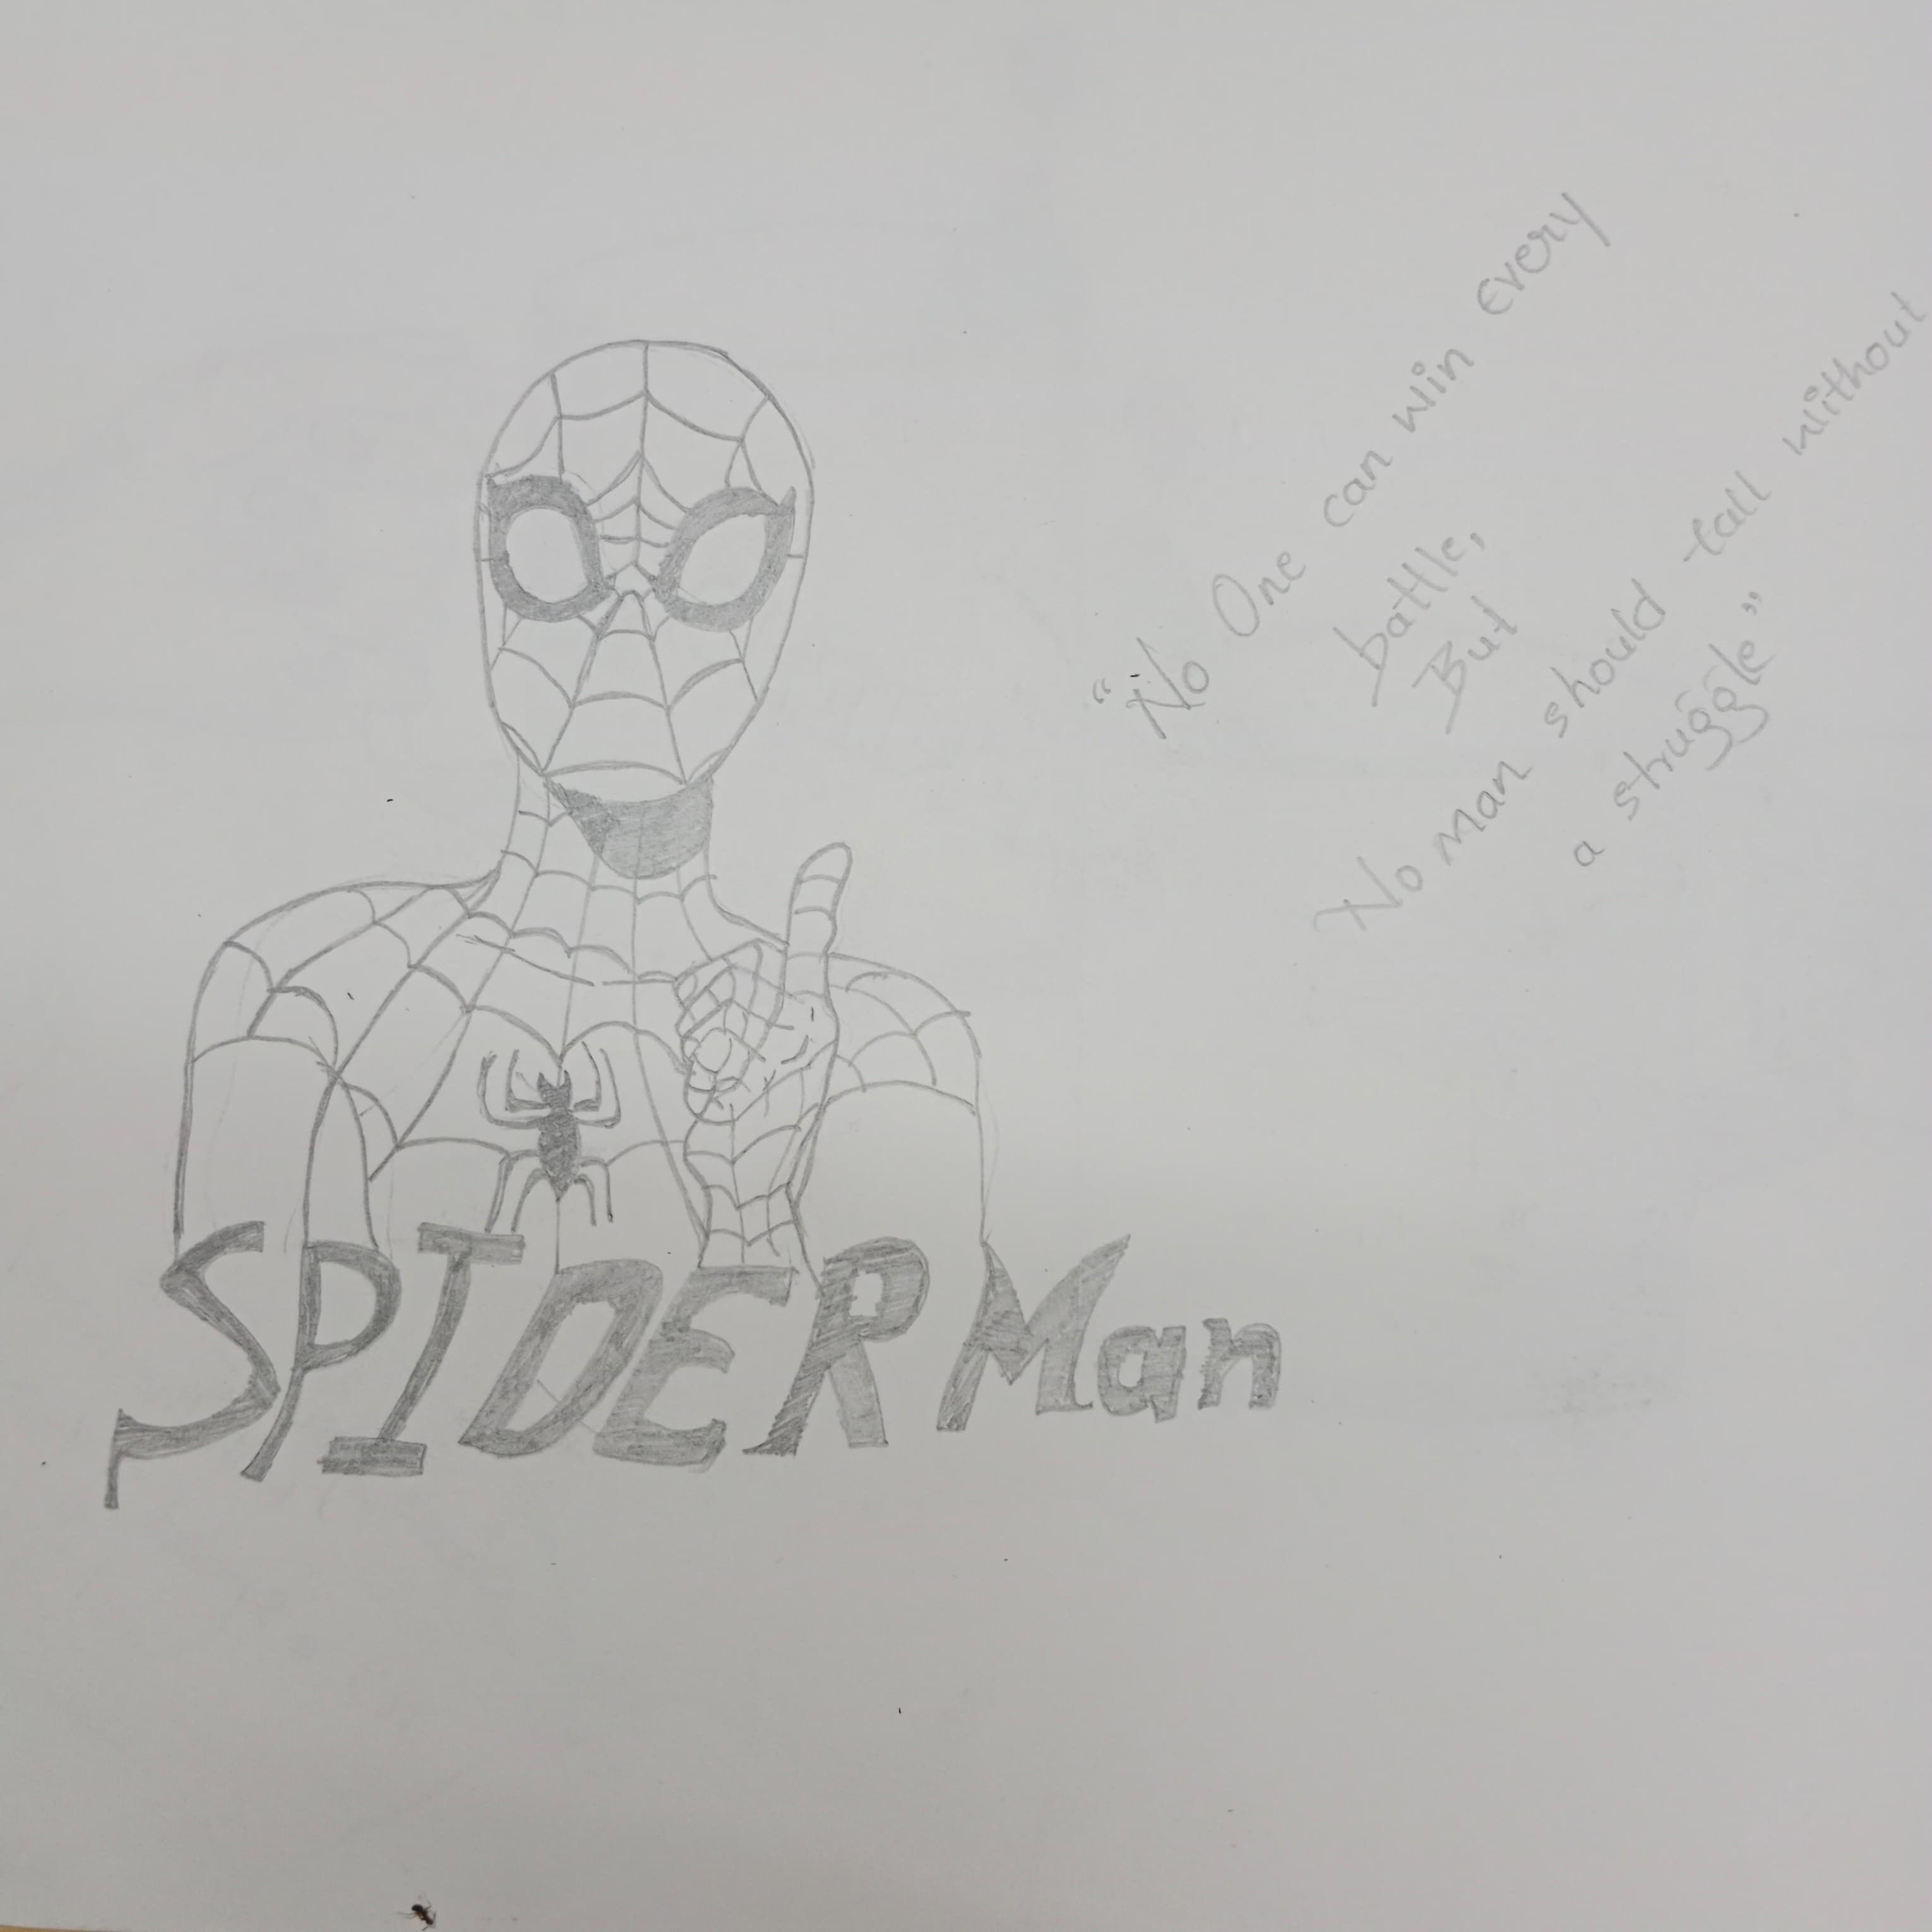 "No One can win every
battle,
But
No man should fall without
a struggle"
SPIDER Man